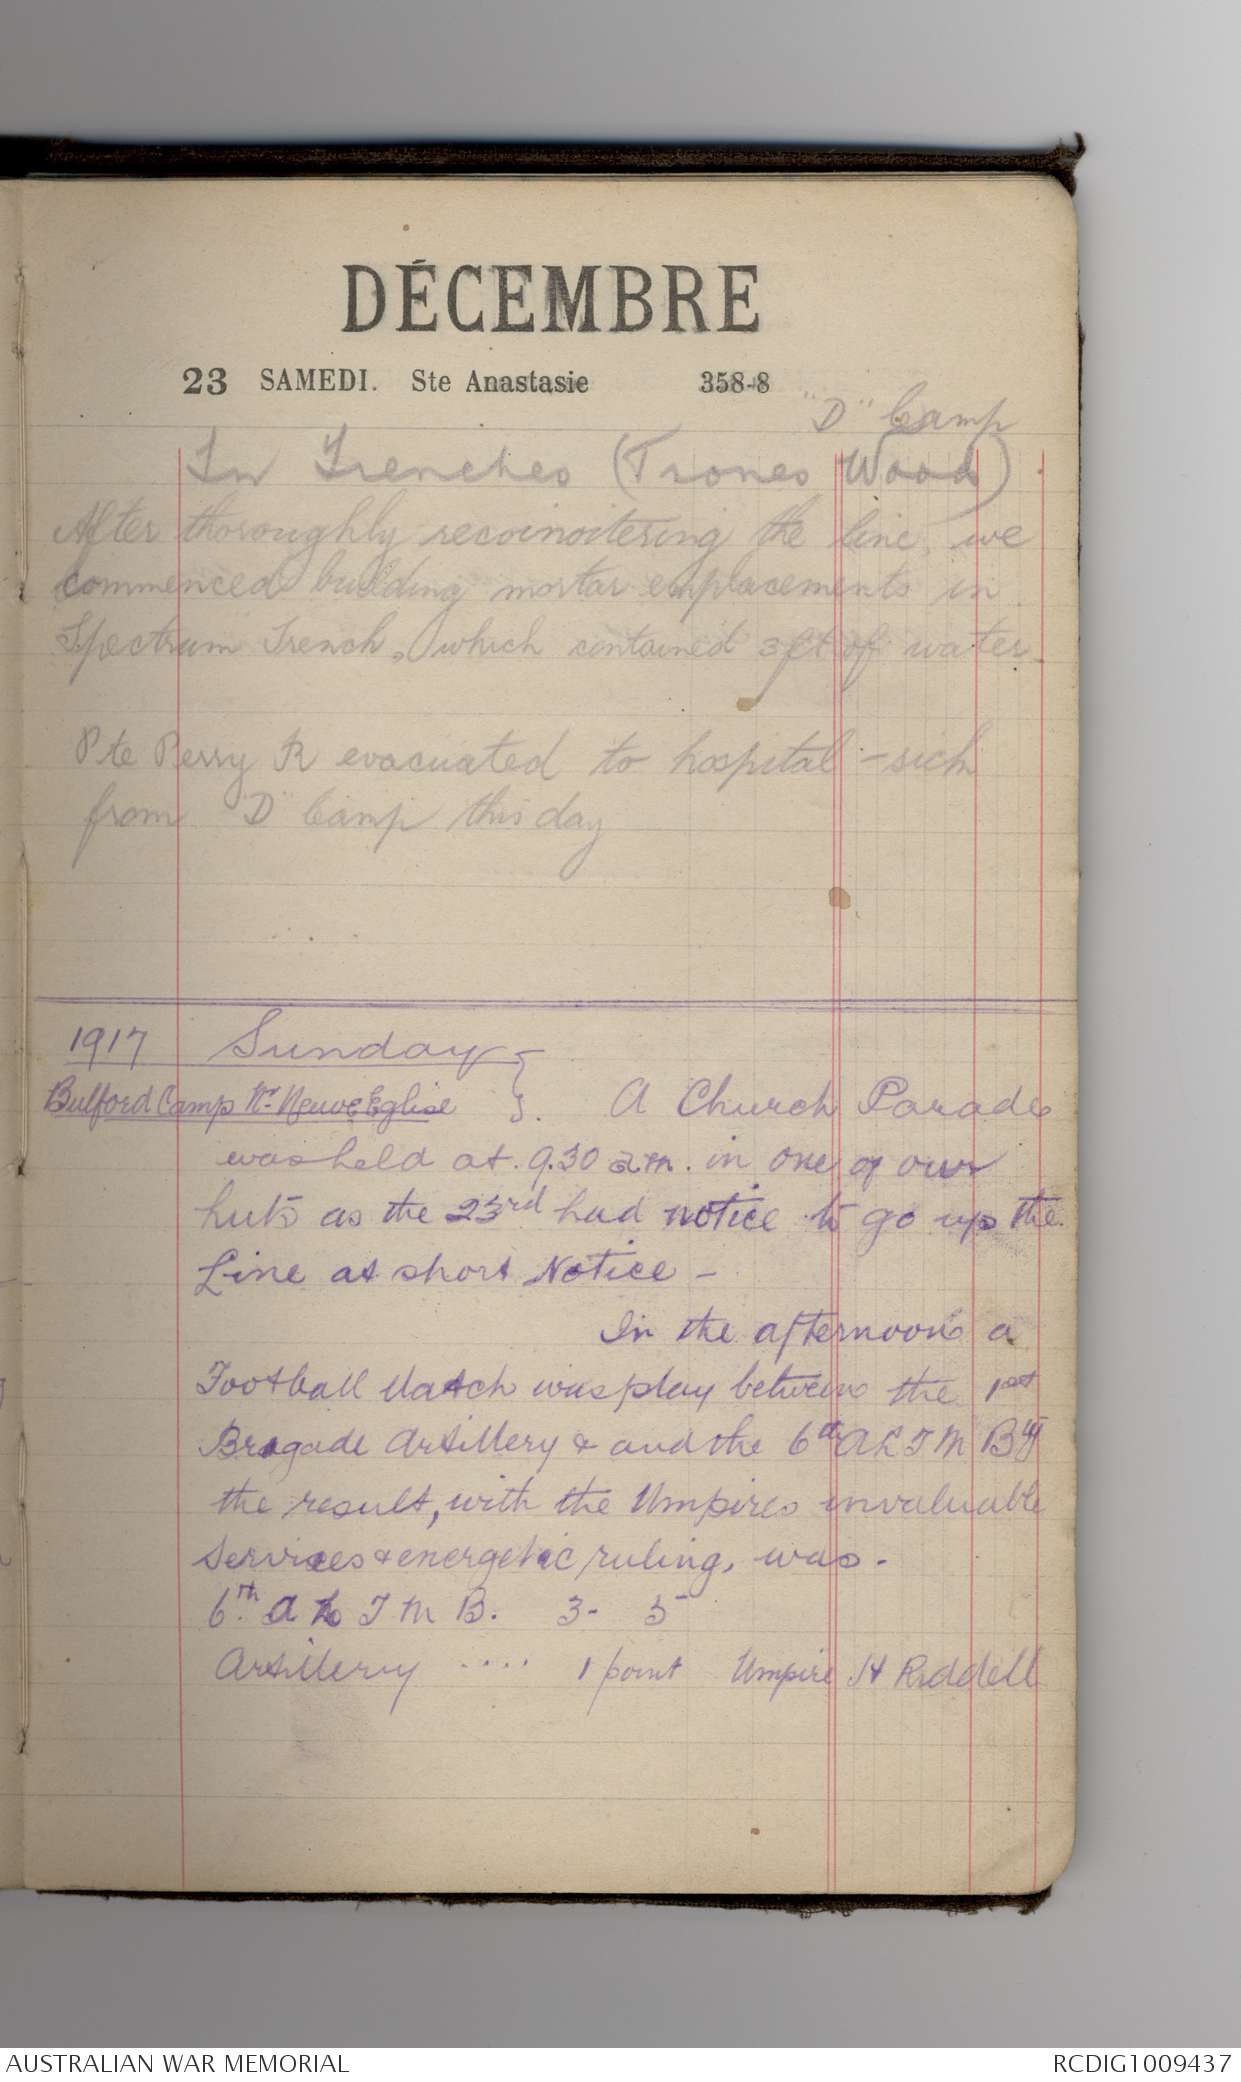 DÉCEMBRE
23 SAMEDI. Ste Anastasie 358-8
"D" Camp
In Trenches (Trones Wood).
After thoroughly recoinoitering the line, we
commenced building mortar emplacements in
Spectrum Trench, which contained 3ft of water.
Pte Perry R evacuated to hospital - sick
from "D" Camp this day
1917 Sunday }
Bulford Camp Nr. Neuve Eglise }. A Church Parade
was held at 9.30 a.m. in one of our
huts as the 23rd had notice to go up the
Line at short Notice -
In the afternoon a
Football Match was play between the 1st
Brigade Artillery & and the 6th A L T M Bty
the result, with the Umpires invaluable
services & energetic ruling, was -
6th A L T M B. 3 - 5
Artillery .... 1 point Umpire H Riddell
AUSTRALIAN WAR MEMORIAL
RCDIG1009437